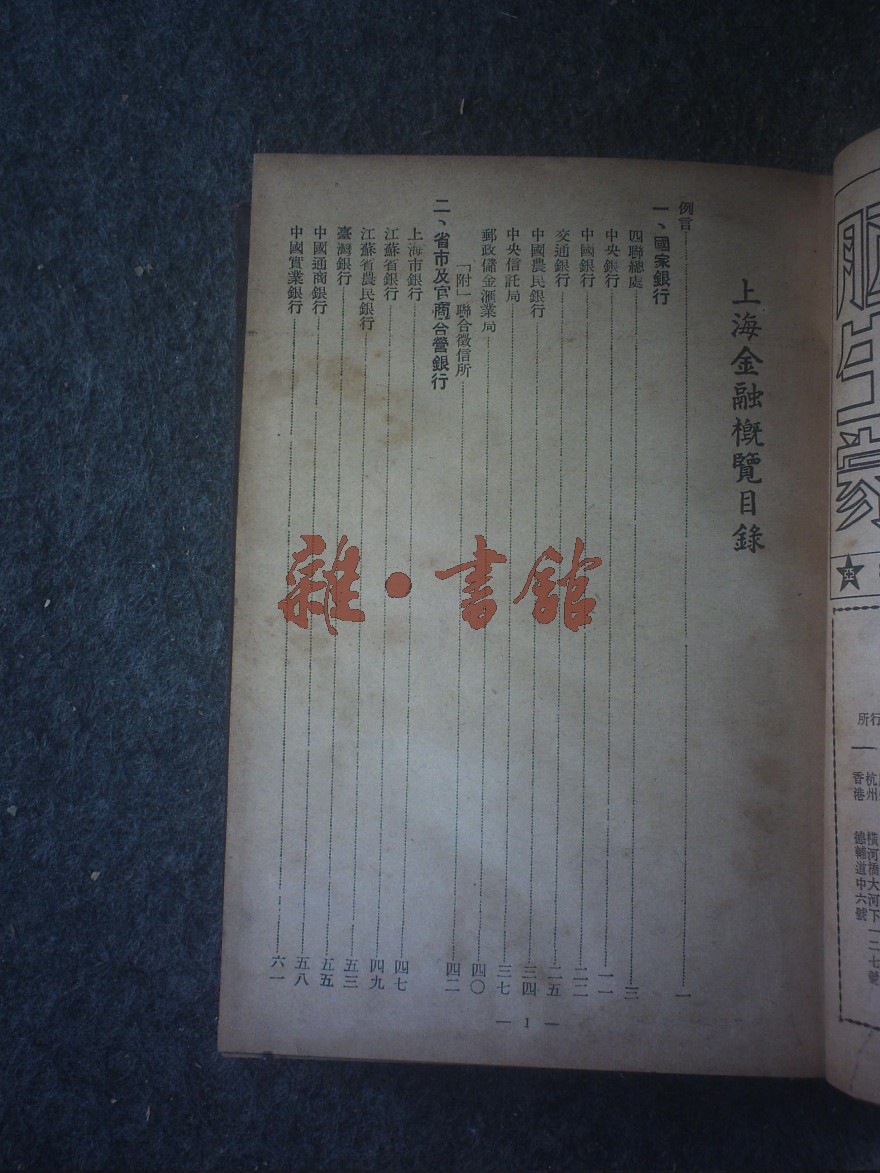 上海金融概覽目錄
例言 一
一、國家銀行
四聯總處 三
中央銀行 一一
中國銀行 二二
交通銀行 二五
中國農民銀行 三四
中央信託局 三七
郵政儲金滙業局 四〇
「附」聯合徵信所 四二
二、省市及官商合營銀行
上海市銀行 四七
江蘇省銀行 四九
江蘇省農民銀行 五三
臺灣銀行 五五
中國通商銀行 五八
中國實業銀行 六一
— 1 —
雜·書館
亞
行所
杭州 橫河橋大河下一二七號
香港 德輔道中六號